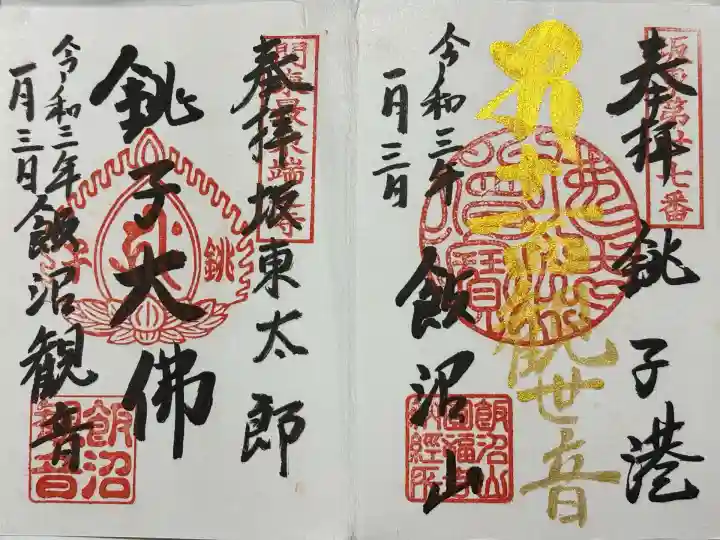 奉拝
銚子港
坂東第廿七番
十一面観世音
飯沼山
飯沼山圓福寺納経所
令和三年
一月三日
奉拝
坂東太郎
関東最東端
銚子大佛
銚子
飯沼観音
飯沼観音
令和三年
一月三日